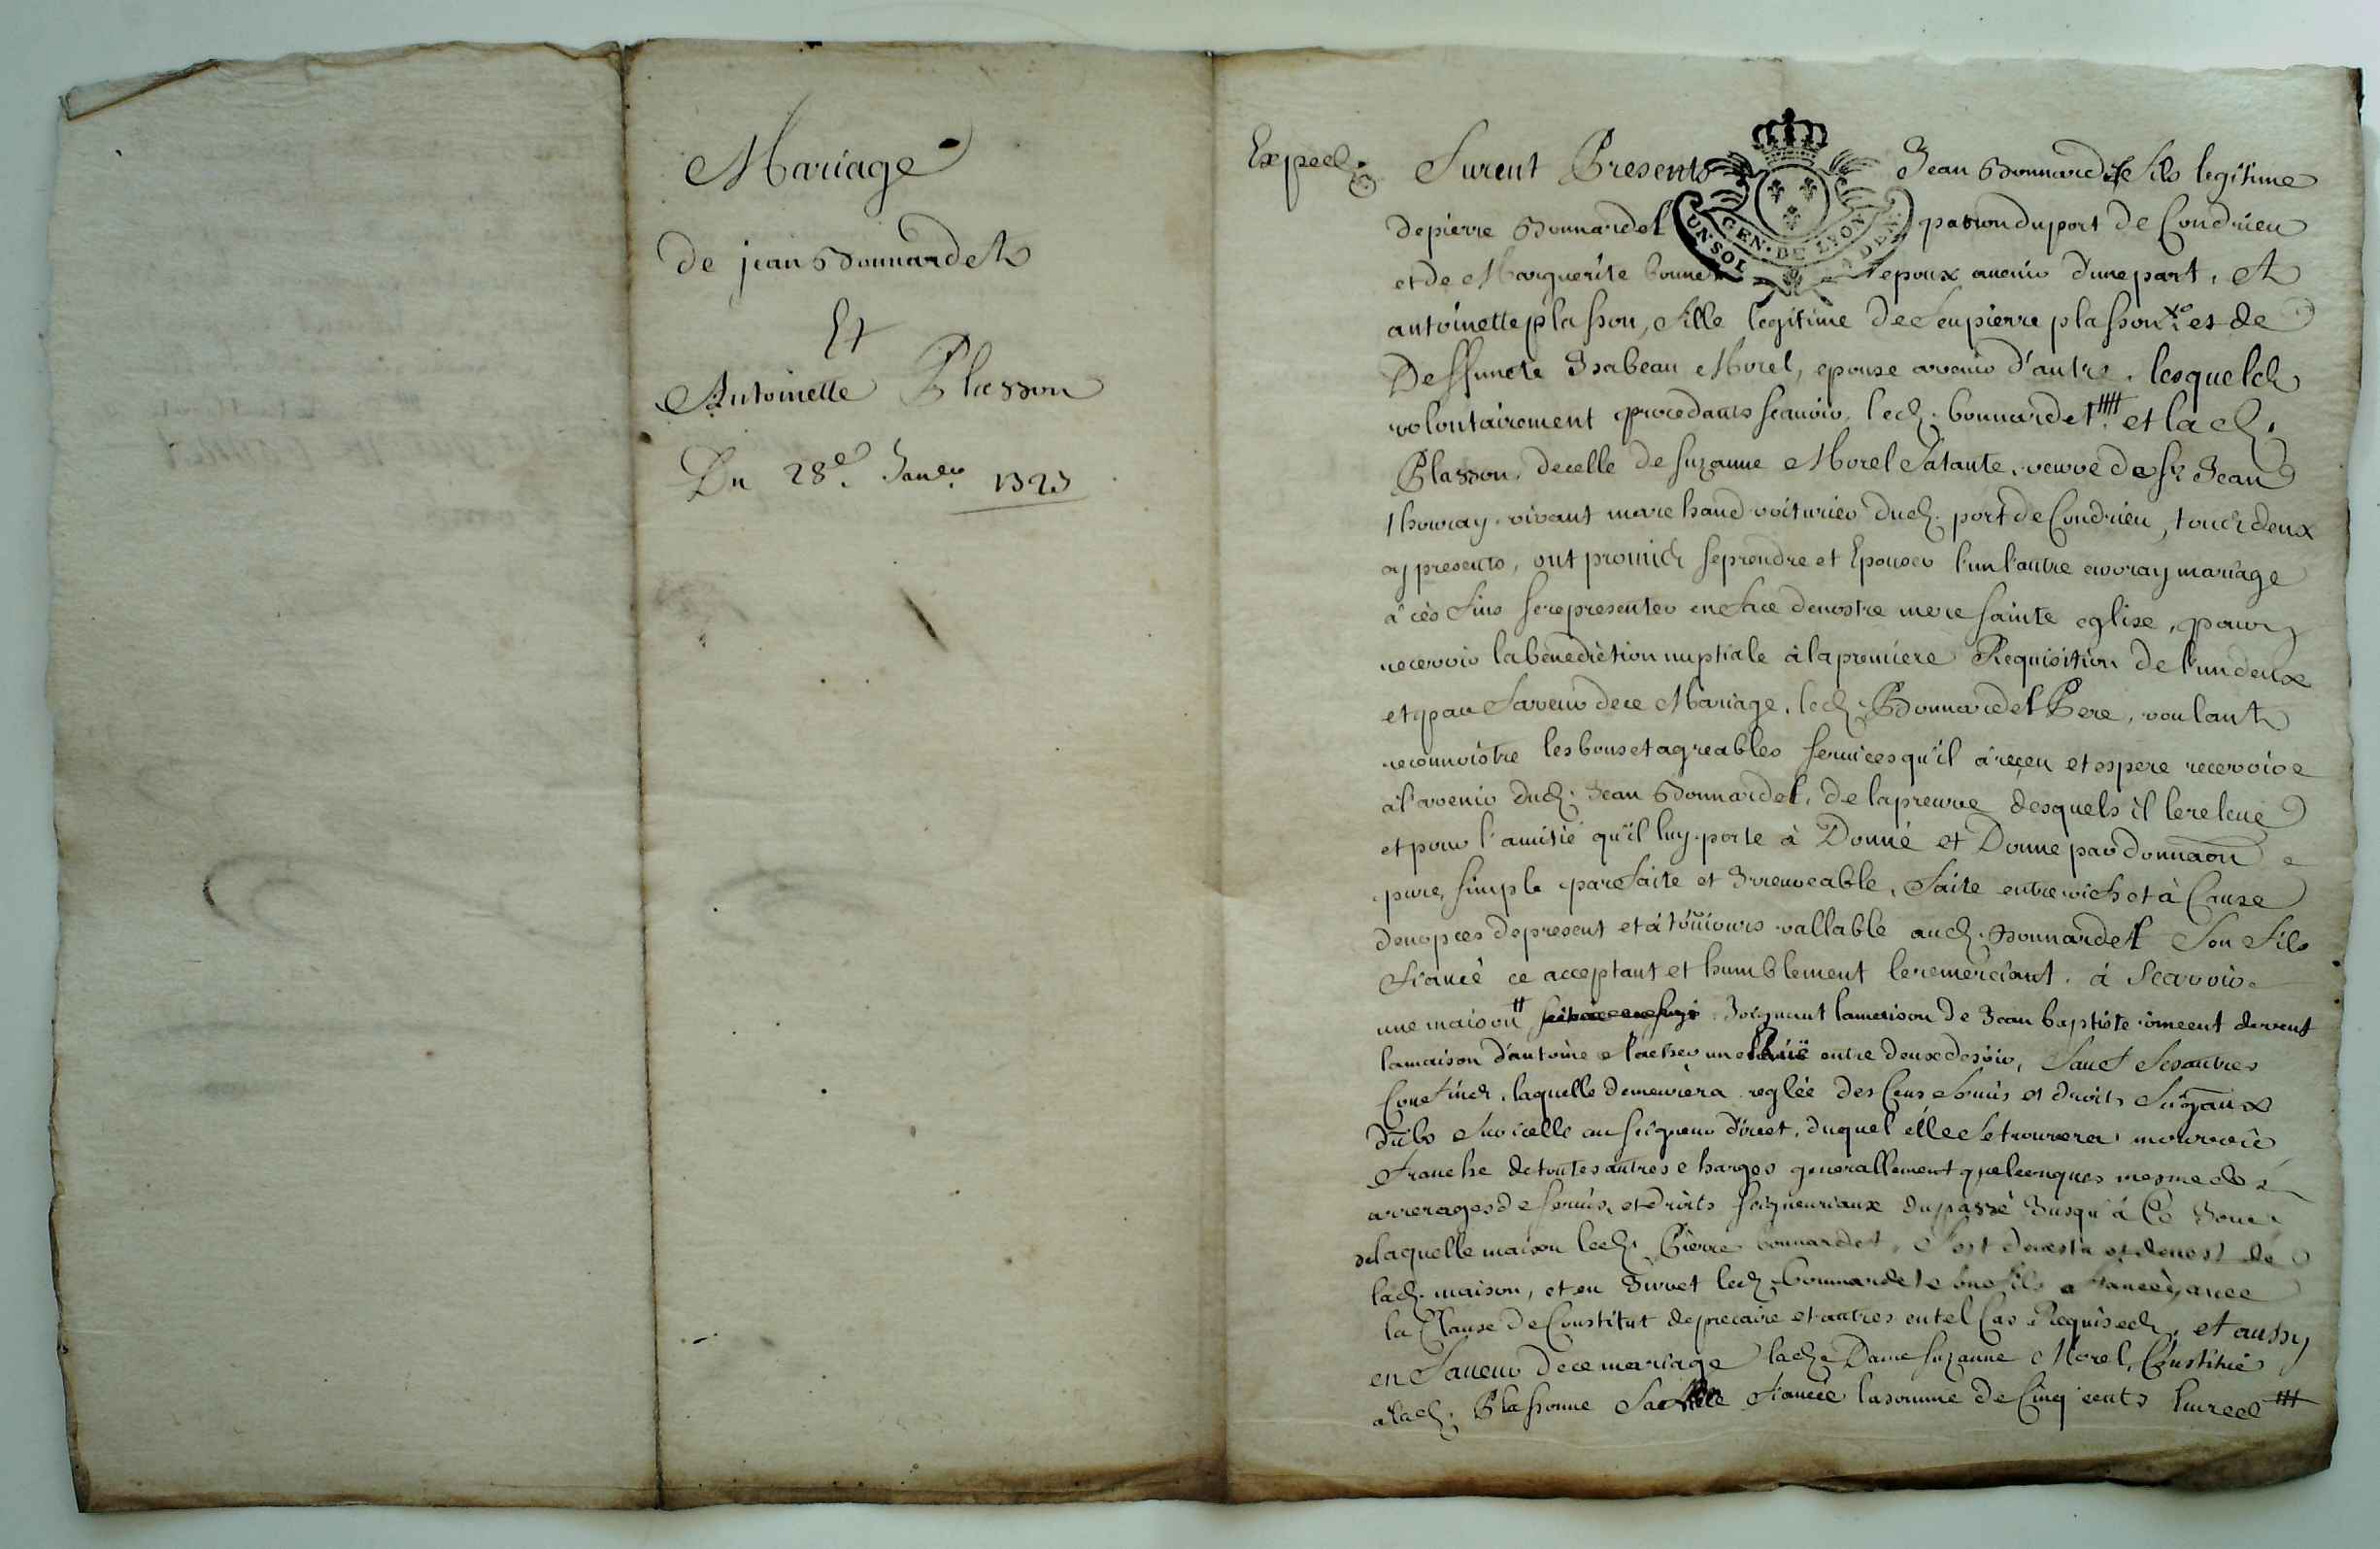 Mariage
de jean Bonnardel
Et
Antoinette Plasson
Du 28e. Janer. 1723
Exped.
Furent Presents Jean Bonnardel fils legitime
de pierre Bonnardel patron du port de Condrieu
et de Marguerite bonnet epoux avenir d'une part, Et
antoinette plasson, fille legitime de feu pierre plasson et de
Deffuncte Isabeau Morel, epouse avenir d'autre, lesquels
volontairement procedants scauoir, led. bonnardel et lad.
Plasson, de celle de suzanne Morel sa tante, veuve de sr. Jean
thouray vivant marchand voiturier dud. port de Condrieu, tous deux
cy presents, ont promis se prendre et Epouser l'un l'autre en vray mariage
à ces fins se representer en face de nostre mere sainte eglise, pour y
recevoir la benediction nuptiale à la premiere Requisition de l'un deux
et par faveur de ce Mariage, led. Bonnardel Pere, voulant
reconnoistre les bons et agreables seruices qu'il à reçeu et espere recevoir
à l'avenir dud. Jean Bonnardel, de la preuve desquels il le releue
et pour l'amitié qu'il luy porte à Donné et Donne par donnaon
pure, simple parfaite et Irreuocable, faite entre vifs et à Cause
de nopces de present et à touiours vallable aud. Bonnardel son fils
fiancé ce acceptant et humblement le remerciant, à scavoir
une maison Joignant la maison de Jean baptiste vincent devant
la maison d'antoine une Ruë entre deux de soir, sauf ses autres
Confins, laquelle demeurera reglée des Cens seruis et droits Sugaux
dûbs sur icelle au seigneur direct, duquel elle se trouvera mouvoir
franche de toutes autres charges generallement quelconques mesme des
arrerages de seruis, et droits seigneuriaux du passé Jusqu'à Ce Jour
de laquelle maison led. Pierre bonnardel, s'est devestu et de
lad. maison, et en led. bonnardel son fils fiancé, avec
la Clause de Constitut de precaire et autres en tel Cas Requises, et aussy
en faueur de ce mariage lad. Dame suzanne Morel, Constitue
à lad. Plassonne fiancée la somme de Cinq cents liures
CEN. DE LYON